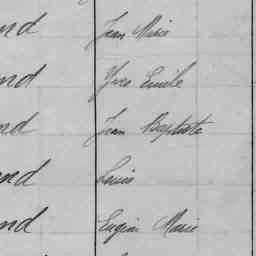 nd Jean Marie
nd Yves Emile
nd Jean Baptiste
nd Louis
nd Eugène Marie